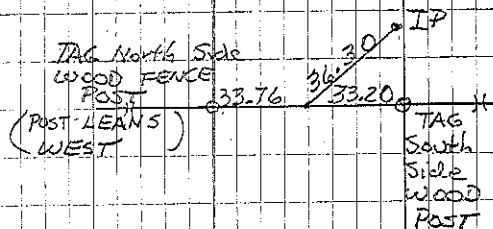 IP
TAG North Side
WOOD FENCE
POST
(POST LEANS
WEST)
33.76
36.30
33.20
TAG
South
Side
WOOD
POST